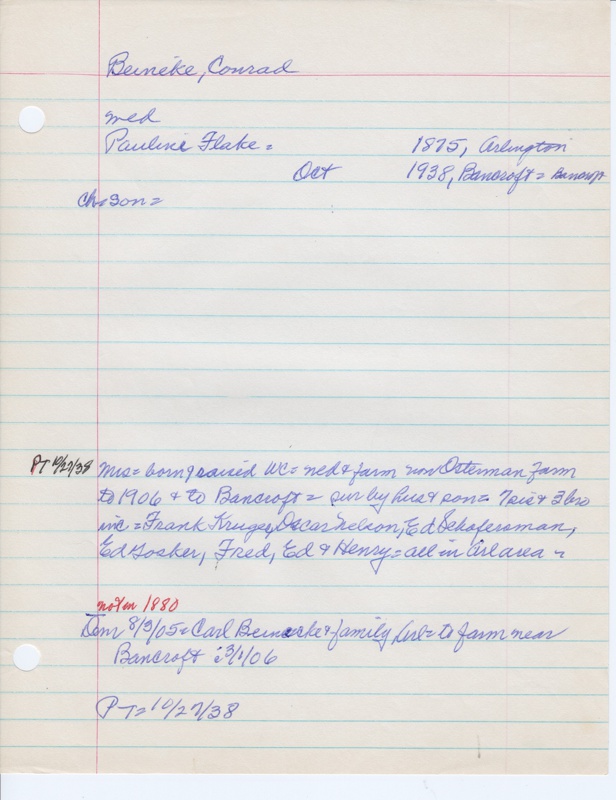 Beineke, Conrad
med
Pauline Flake = 1875, Arlington
Oct 1938, Bancroft = Bancroft
Ch = Son =
PT 10/27/38 Mrs = born & raised WC = med & farm on Osterman farm
to 1906 & to Bancroft = sur by hus & son = 7 sis & 3 bro
inc = Frank Kruger, Oscar Nelson, Ed Schafersman,
Ed Gosker, Fred, Ed & Henry = all in Arl area
not in 1880
Dem 8/3/05 = Carl Beinecke & family Arl = to farm near
Bancroft : 3/1/06
PT = 10/27/38